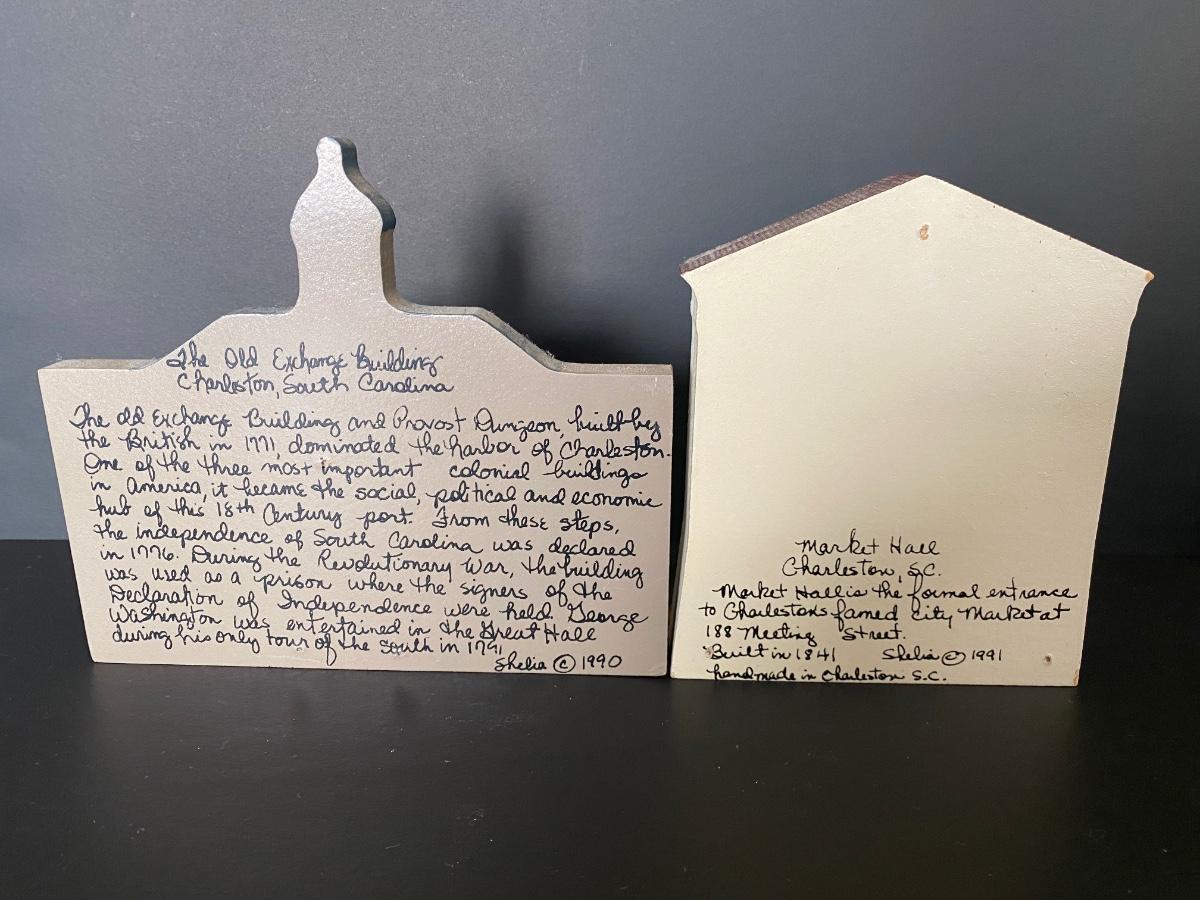 The Old Exchange Building
Charleston, South Carolina
The old Exchange Building and Provost Dungeon, built by
the British in 1771, dominated the harbor of Charleston.
One of the three most important colonial buildings
in America, it became the social, political and economic
hub of this 18th Century port. From these steps,
the independence of South Carolina was declared
in 1776. During the Revolutionary War, the building
was used as a prison where the signers of the
Declaration of Independence were held. George
Washington was entertained in the Great Hall
during his only tour of the south in 1791.
Shelia © 1990
Market Hall
Charleston, S.C.
Market Hall is the formal entrance
to Charlestons famed City Market at
188 Meeting Street.
Built in 1841 Shelia © 1991
handmade in Charleston S.C.